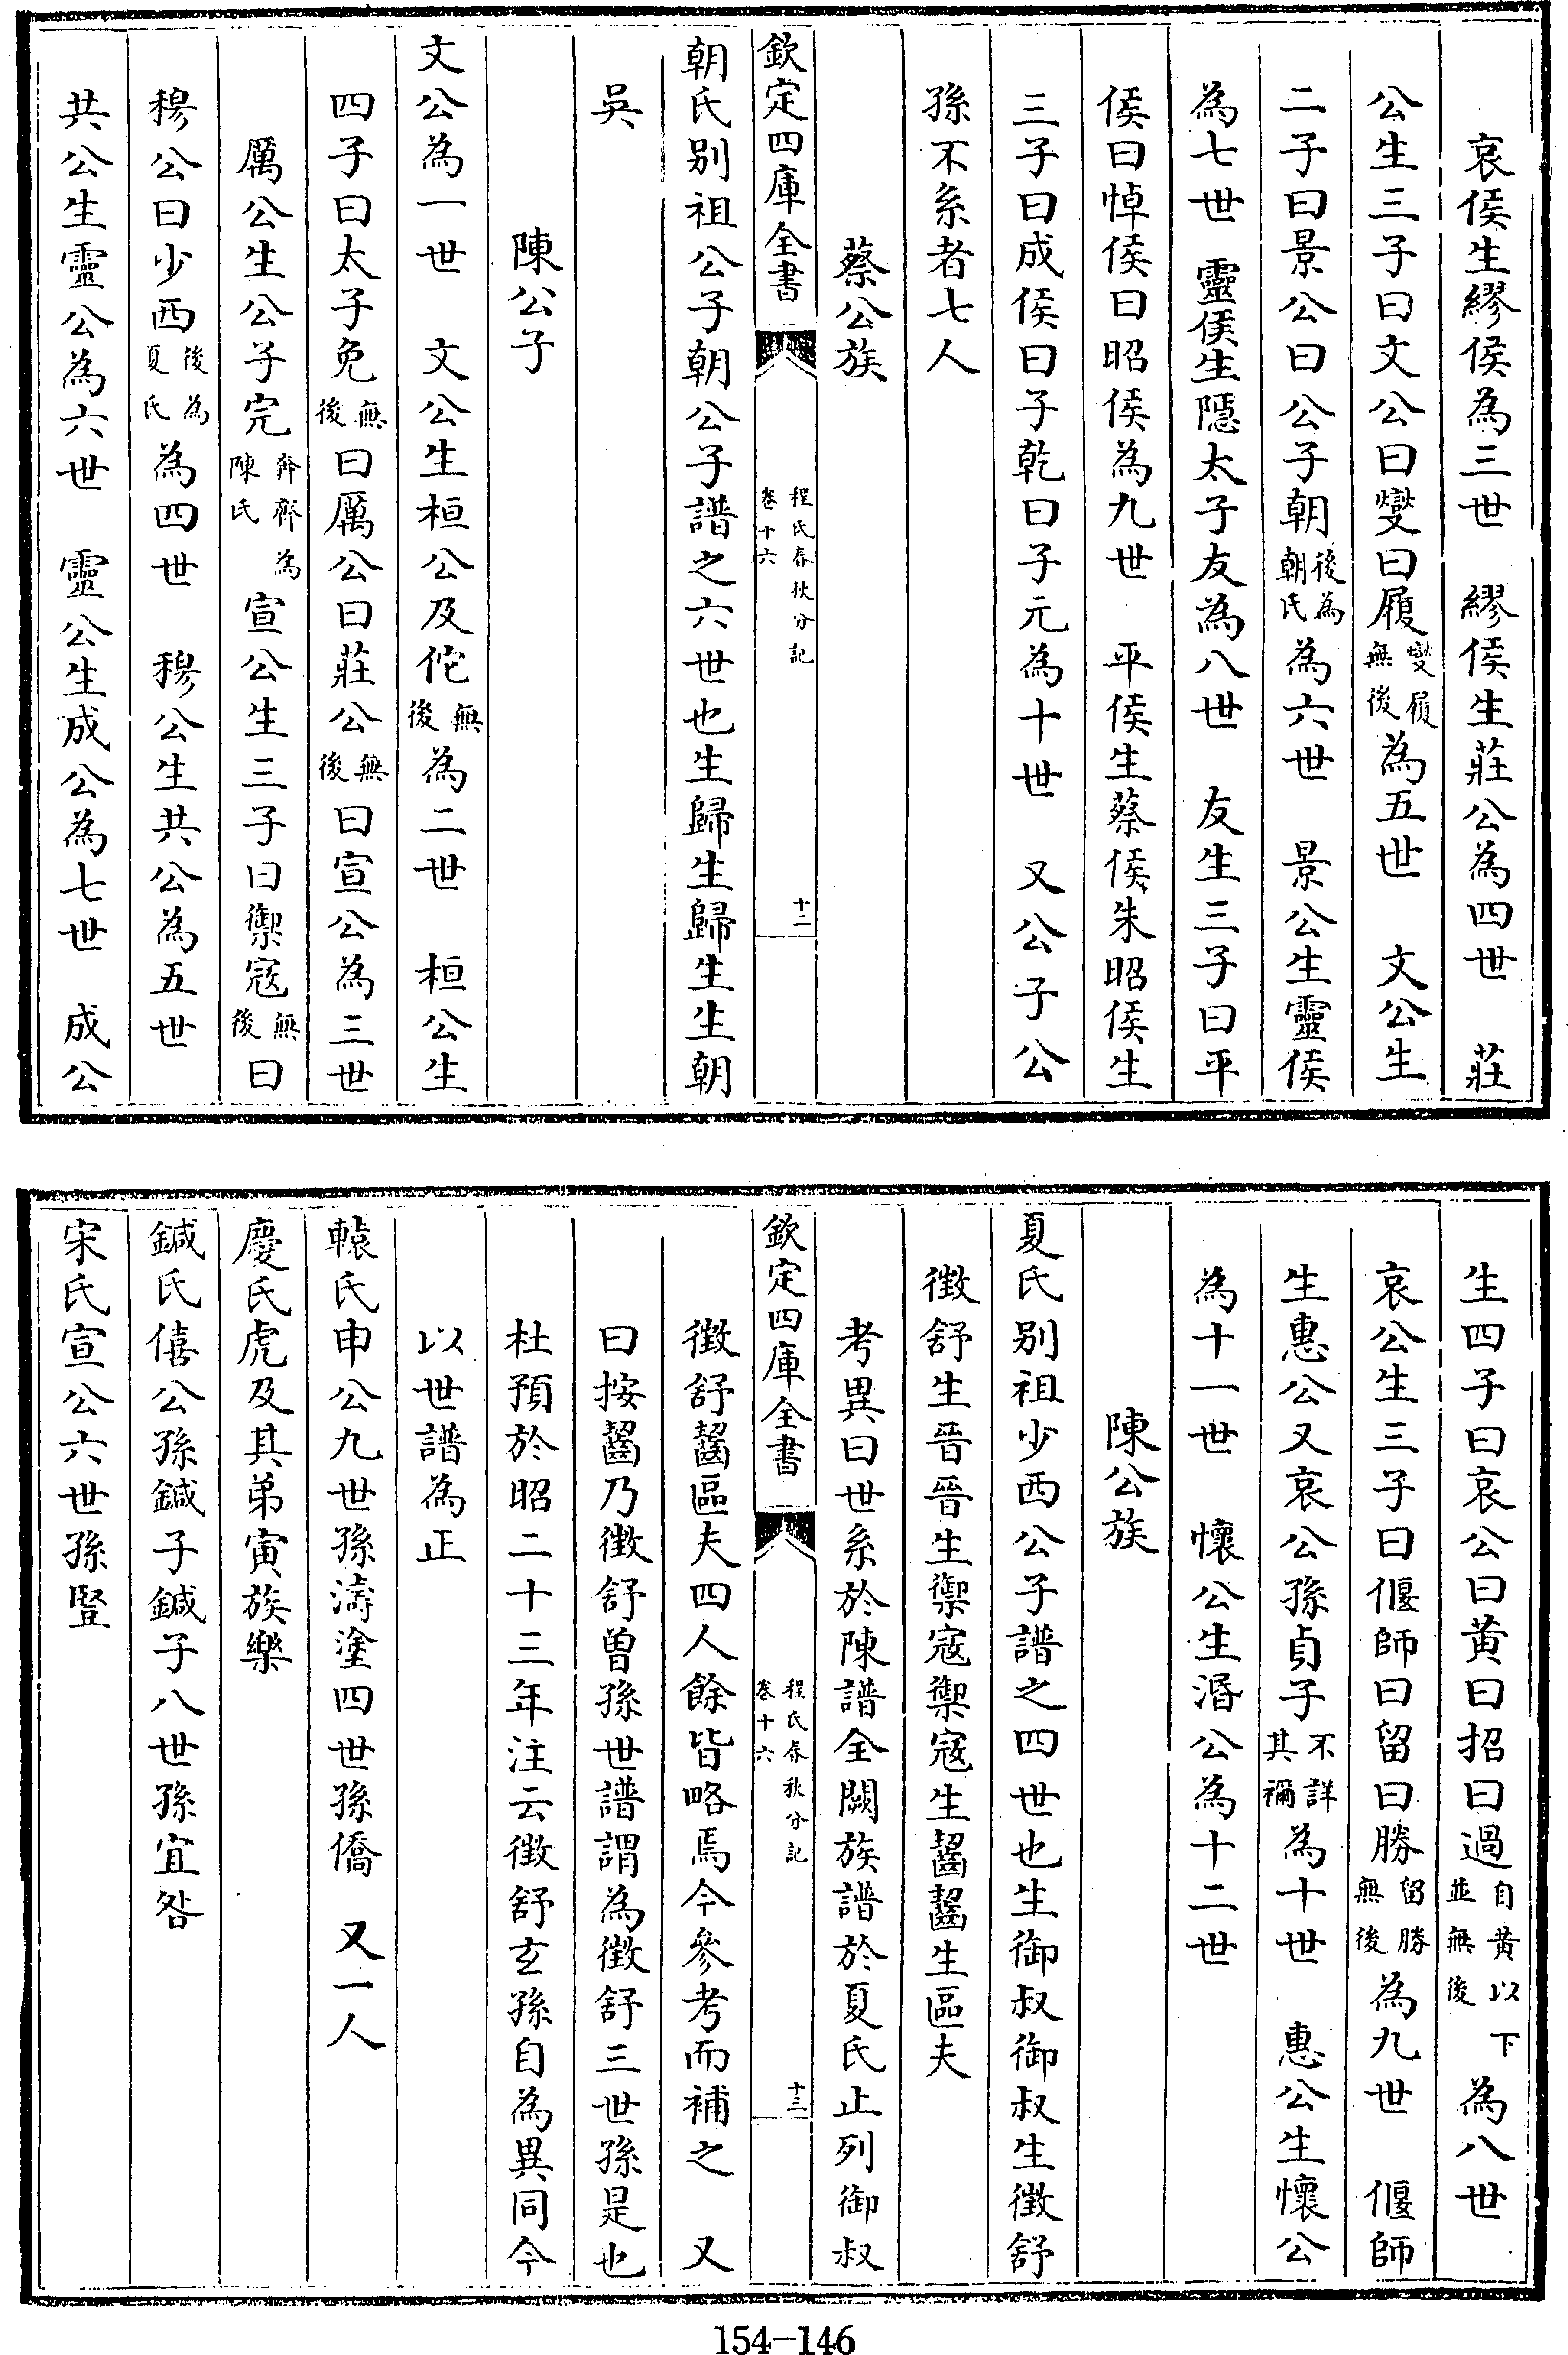 哀侯生繆侯為三世　繆侯生莊公為四世　莊
公生三子曰文公曰燮曰履燮履無後為五世　文公生
二子曰景公曰公子朝後為朝氏為六世　景公生靈侯
為七世　靈侯生隱太子友為八世　友生三子曰平
侯曰悼侯曰昭侯為九世　平侯生蔡侯朱昭侯生
三子曰成侯曰子乾曰子元為十世　又公子公
孫不系者七人
蔡公族
欽定四庫全書　程氏春秋分記卷十六　十二
朝氏别祖公子朝公子譜之六世也生歸生歸生生朝
吳
陳公子
文公為一世　文公生桓公及佗無後為二世　桓公生
四子曰太子免無後曰厲公曰莊公無後曰宣公為三世
厲公生公子完奔齊為陳氏宣公生三子曰禦寇無後曰
穆公曰少西後為夏氏為四世　穆公生共公為五世
共公生靈公為六世　靈公生成公為七世　成公
生四子曰哀公曰黄曰招曰過自黄以下並無後為八世
哀公生三子曰偃師曰留曰勝留勝無後為九世　偃師
生惠公又哀公孫貞子不詳其禰為十世　惠公生懷公
為十一世　懷公生湣公為十二世
陳公族
夏氏别祖少西公子譜之四世也生御叔御叔生徵舒
徵舒生晉晉生禦寇禦寇生齧齧生區夫
考異曰世系於陳譜全闕族譜於夏氏止列御叔
欽定四庫全書　程氏春秋分記卷十六　十三
徵舒齧區夫四人餘皆略焉今參考而補之　又
曰按齧乃徵舒曾孫世譜謂為徵舒三世孫是也
杜預於昭二十三年注云徵舒玄孫自為異同今
以世譜為正
轅氏申公九世孫濤塗四世孫僑　又一人
慶氏虎及其弟寅族樂
鍼氏僖公孫鍼子鍼子八世孫宜咎
宋氏宣公六世孫豎
154-146